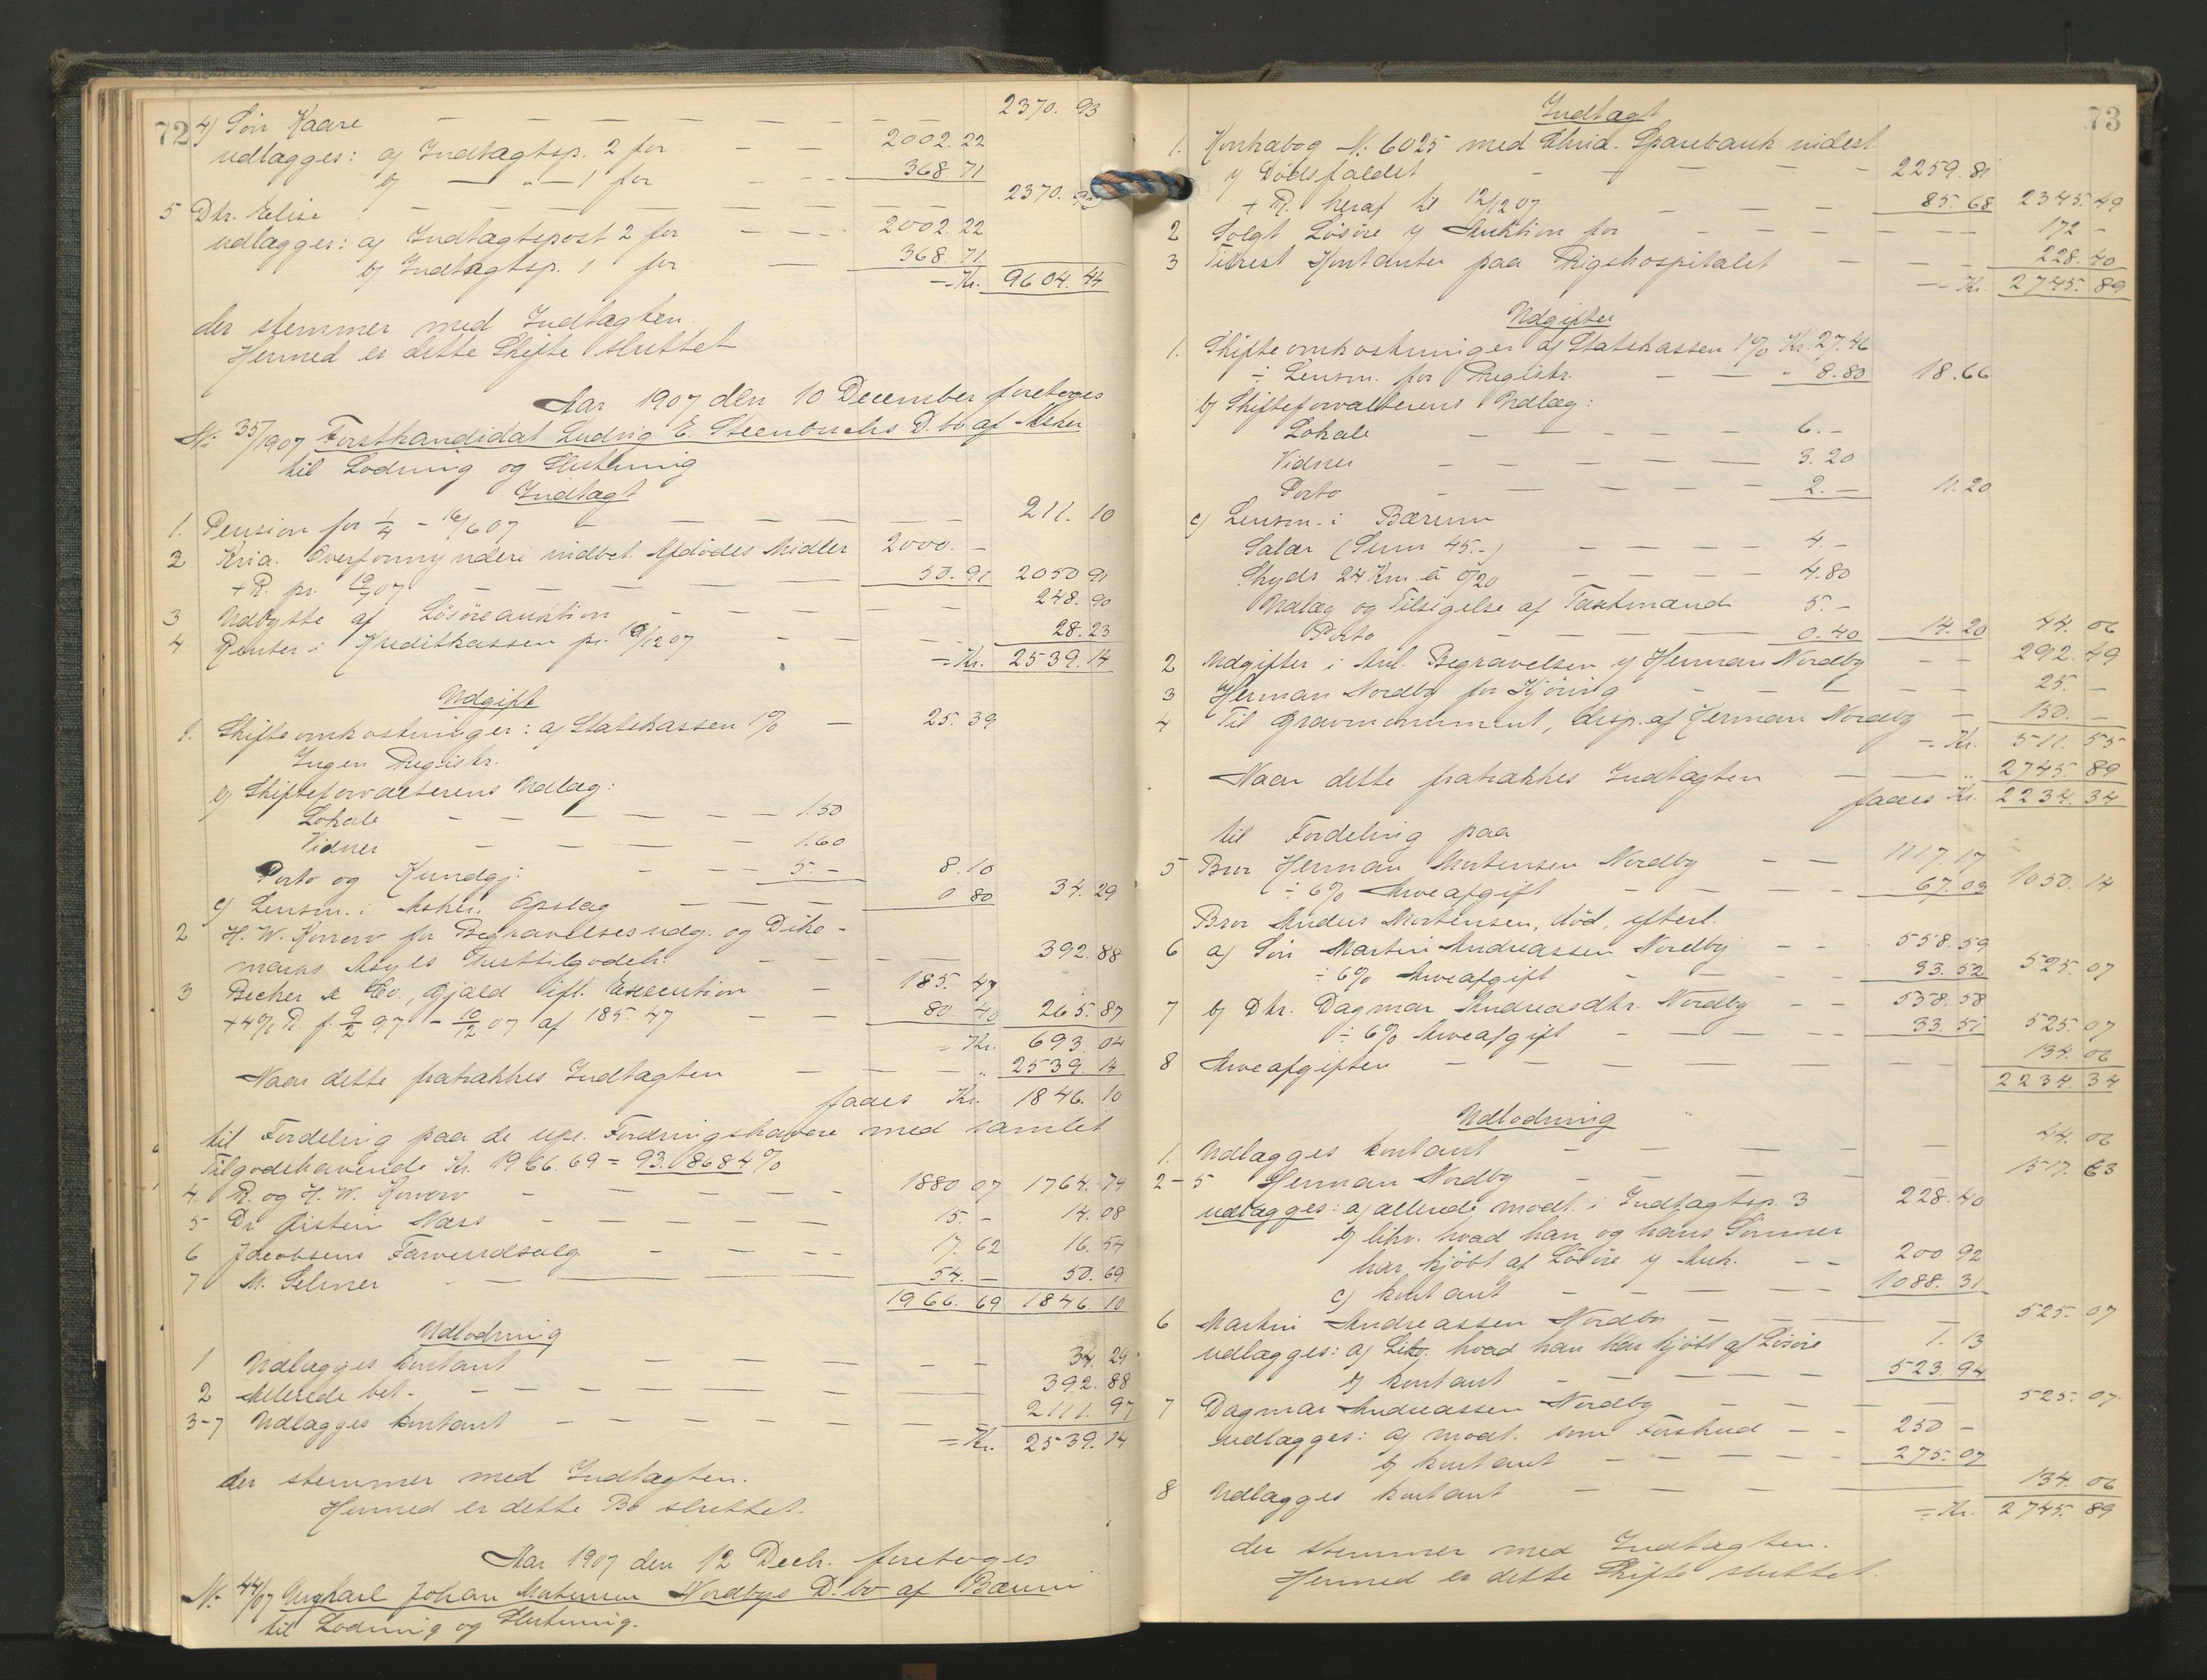 72
4) Søn Kaare — — — — — — — 2370. 93
udlægges: a) Indtægtsp. 2 for — — 2002. 22
b) — " — 1 for — — 368 71
5 Dtr. Elise — — — — — — — 2370. 93
udlægger: a) Indtægtspost 2 for — — 2002. 22
b) Indtægtsp. 1 for — 368 71
= Kr. 9604. 44
der stemmer med Indtægten.
Hermed er dette Skifte sluttet
Aar 1907 den 10 December foretoges
No 35/1907 Forstkandidat Ludvig E. Steenbuchs D.bo af Asker
til Lodning og Slutning
Indtægt
1. Pension for 1/4 - 16/6 07 — — — — — 211. 10
2 Kria. Overformynderi indbet. Afdødes Midler 2000. -
+ R. pr. 10/7 07 — — — — 50. 91 2050 91
3 Udbytte af Løsøreauktion — — — — — 248. 90
4 Renter i Kreditkassen pr. 10/12 07 — — — 28. 23
= Kr. 2539. 14
Udgift
1. Skifteomkostninger: a) Statskassen 1% — 25. 39
Ingen Registr.
b) Skifteforvalterens Udlæg:
Lokale — — — — — 1.50
Vidner — — — — 1.60
Porto og Kundgj: — — — 5. - 8. 10
c) Lensm. i Asker. Opslag — — — 0 80 34. 29
2 H. W. Korvov for Begravelsesudg. og Dike-
marks Asyls Resttilgodeh. — — — 392. 88
3 Becker & Co., Gjæld ift. Execution — 185. 47
+ 4% R. f. 9/2 97 - 10/12 07 af 185. 47 — — 80. 40 265. 87
= Kr. 693. 04
Naar dette fratrækkes Indtægten — — — " 2539. 14
faaes Kr. 1846. 10
til Fordeling paa de upr. Fordringshavere med samlet
Tilgodehavende Kr. 1966.69 = 93.8684%
4. R. og H. W. Korvov — — — — 1880 07 1764. 79
5 Dr. Øistein Næss — — — — — 15. - 14. 08
6 Jacobsens Farveudsalg — — — 17. 62 16. 54
7 M. Selmer — — — — 54. - 50. 69
1966. 69 1846. 10
Udlodning
1 Udlægges kontant — — — — — 34. 29
2 Allerede bet. — — — — — — 392. 88
3-7 Udlægges kontant — — — — — 2111. 97
= Kr. 2539. 14
der stemmer med Indtægten.
Hermed er dette Bo sluttet.
Aar 1907 den 12 Decb. foretoges
No 44/07 Ungkarl Johan Mortensen Nordbys D.bo af Bærum
til Lodning og Slutning.
73
Indtægt
1. Kontrabog No. 6025 med Chrid. Sparebank indest.
v/ Dødsfaldet — — — — 2259. 81
+ R. heraf til 12/12 07 — — — 85. 68 2345. 49
2 Solgt Løsøre v/ Auktion for — — — — — 172 -
3 Tilrest Kontanter paa Rigshospitalet — — — 228. 40
= Kr. 2745. 89
Udgifter
1. Skifteomkostninger a) Statskassen 1% Kr. 27.46
÷ Lensm. for Registr. — — " 8.80 18. 66
b) Skifteforvalterens Udlæg:
Lokale — — — — — 6. -
Vidner — — — — — 3. 20
Porto — — — — — 2. - 11. 20
c) Lensm. i Bærum
Salær (Sum 45.-) — — — — 4. -
Skyds 24 Km. à 0/20 — — — — 4.80
Udlæg og Tilsigelse af Takstmænd 5. -
Porto — — — — 0.40 14. 20 44. 06
2 Udgifter i Anl. Begravelsen v/ Herman Nordby — — 292. 49
3 Herman Nordby for Kjøring — — — — — 25. -
4 Til Gravmonument, disp. af Herman Nordby — 150. -
= Kr. 511. 55
Naar dette fratrækkes Indtægten — — — " 2745. 89
faaes Kr. 2234. 34
til Fordeling paa
5 Bror Herman Mortensen Nordby — — 1117. 17
÷ 6% Arveafgift — — — — 67. 03 1050. 14
Bror Anders Mortensen, død, efterl.
6 a) Søn Martin Andreassen Nordby — — 558. 59
÷ 6% Arveafgift — — — — 33. 52 525. 07
7 b) Dtr. Dagmar Andreasdtr. Nordby — — 558. 58
÷ 6% Arveafgift — — — — 33. 51 525. 07
8 Arveafgiften — — — — — — 134. 06
2234. 34
Udlodning
1. Udlægges kontant — — — — — 44. 06
2-5 Herman Nordby — — — — — 1517. 63
udlægges: a) allerede modt. i Indtægtsp. 3 228. 40
b) likv. hvad han og hans Sønner
har kjøbt af Løsøre v/ Auk. — — 200 92
c) kontant — — — — — 1088. 31
6 Martin Andreassen Nordby — — — — 525. 07
udlægges: a) Likv. hvad han har kjøbt af Løsøre 1. 13
b) kontant — — — — — 523. 94
7 Dagmar Andreassen Nordby — — — — 525. 07
udlægges: a) modt. som Forskud — — 250 -
b) kontant — — — — — 275. 07
8 Udlægges kontant — — — — — 134. 06
= Kr. 2745. 89
der stemmer med Indtægten.
Hermed er dette Skifte sluttet.